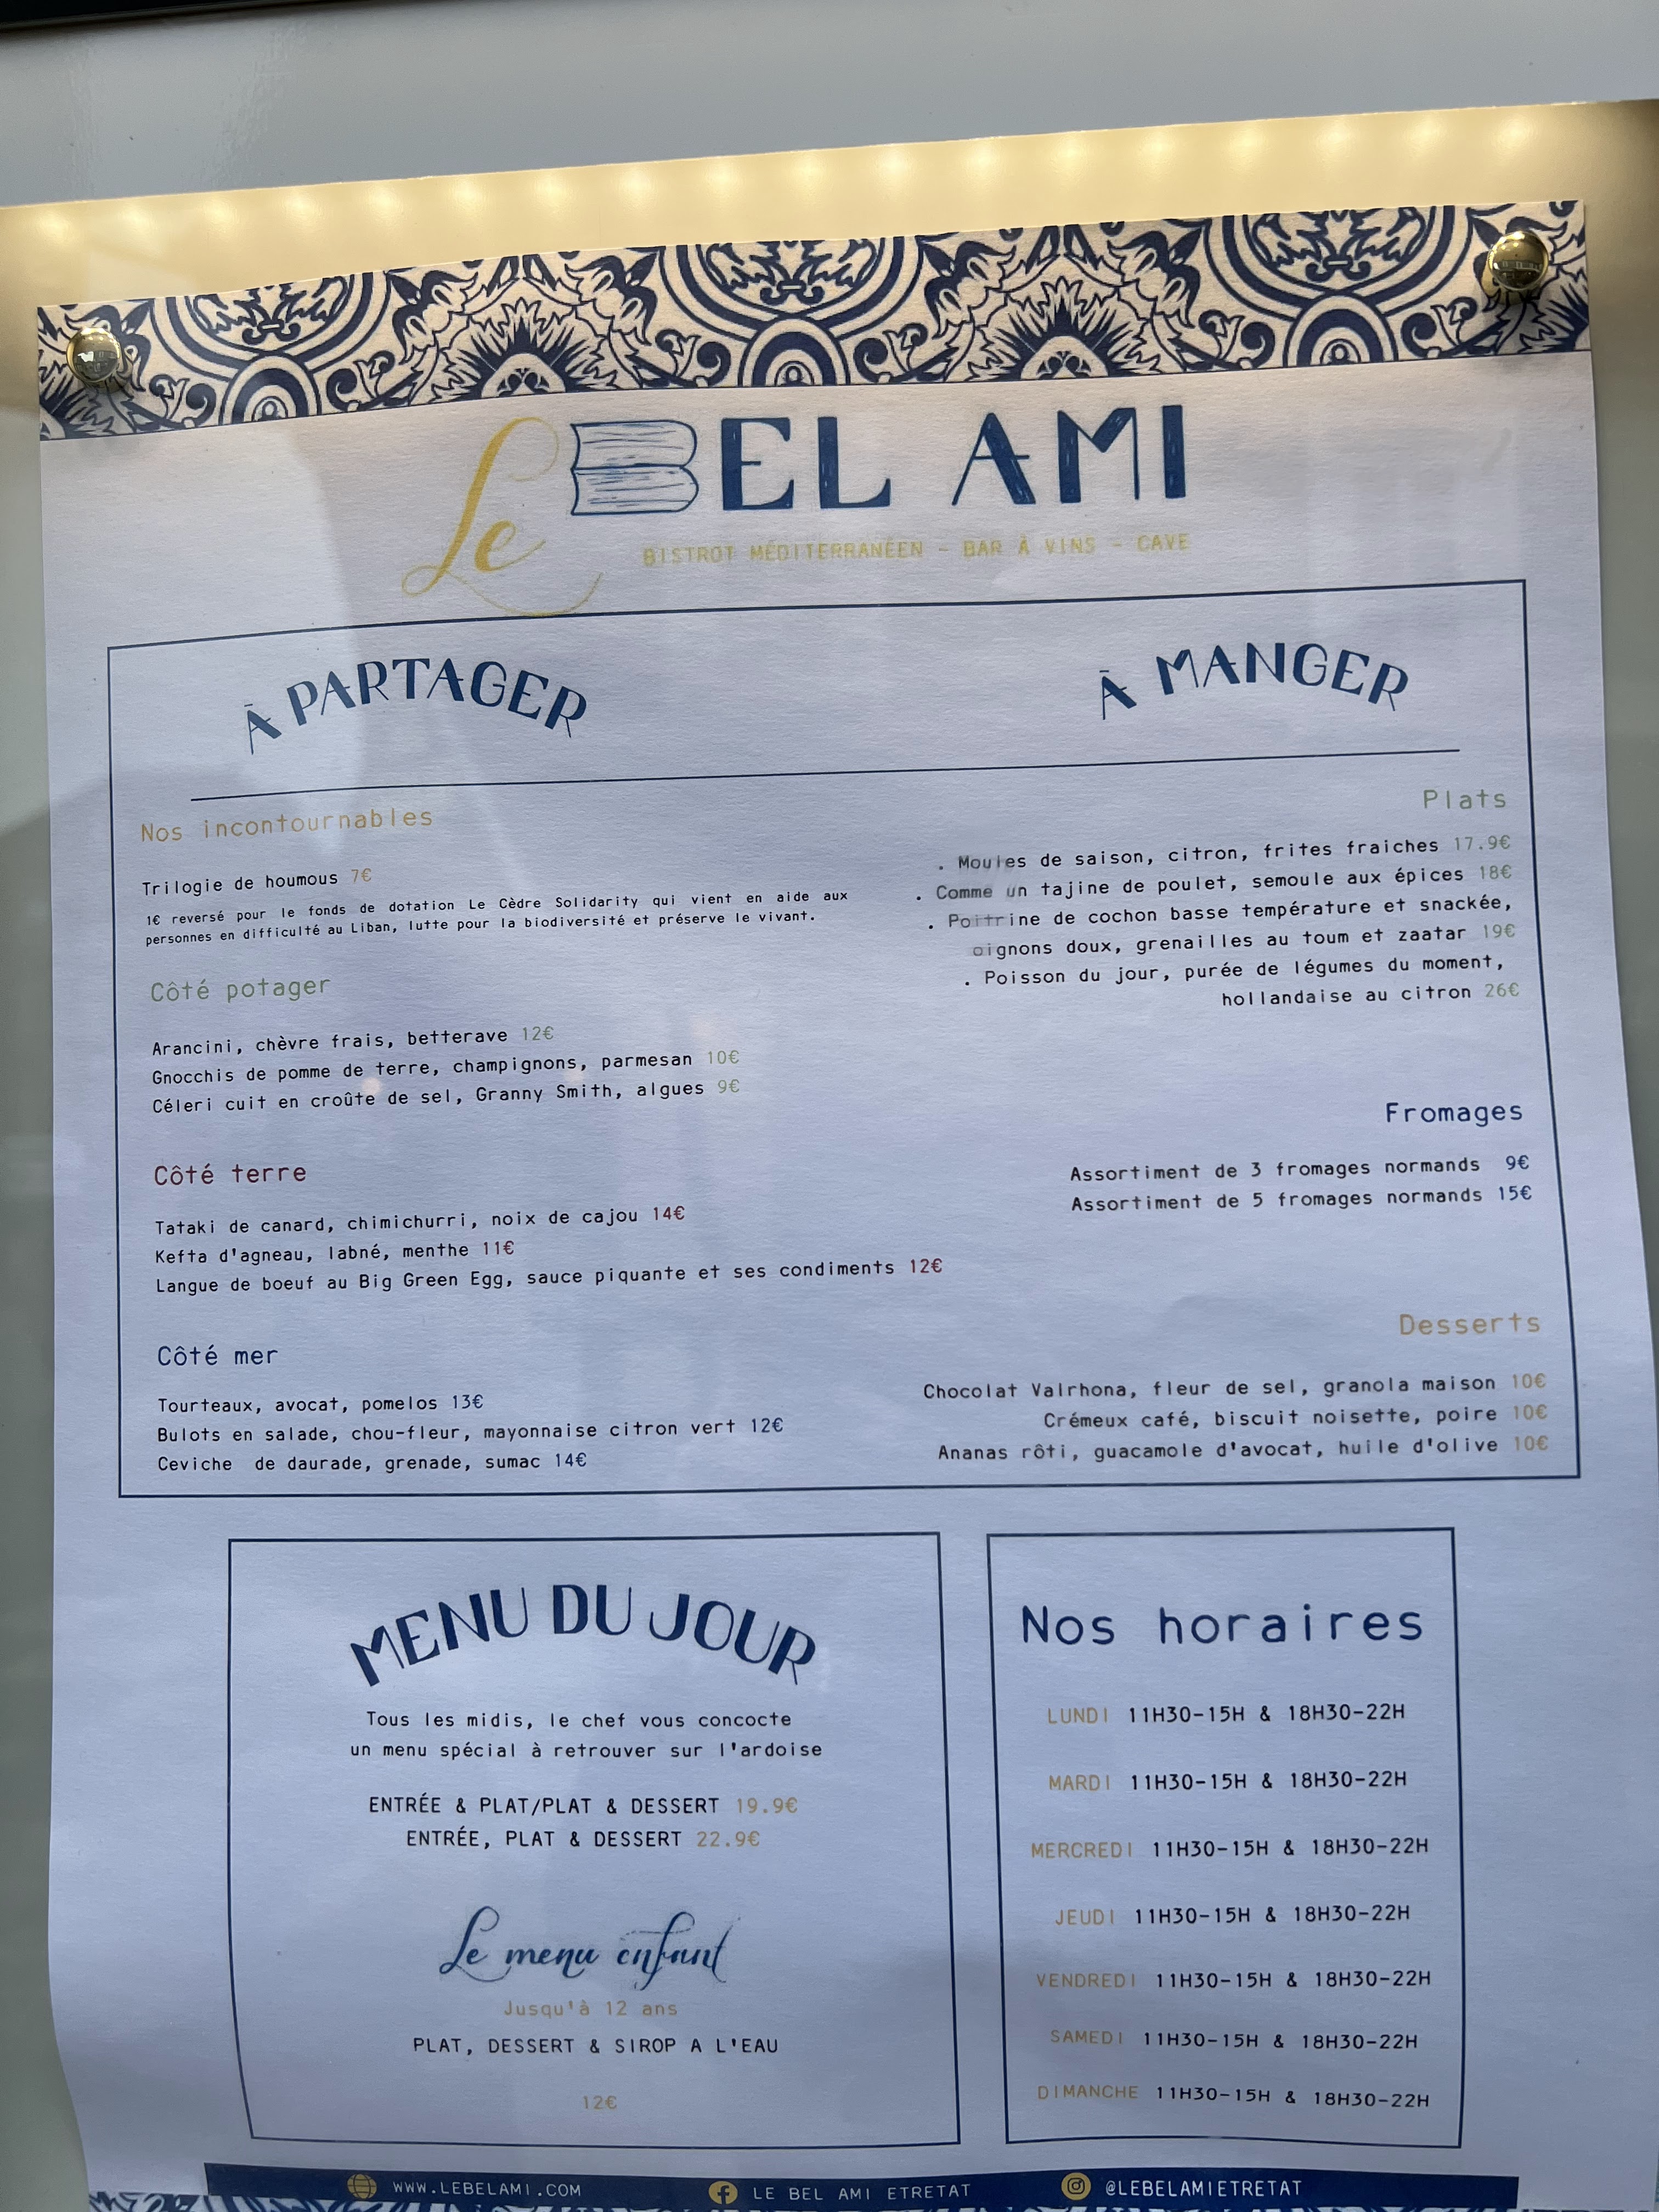 Le BEL AMI
BISTROT MÉDITERRANÉEN - BAR À VINS - CAVE
À PARTAGER
Nos incontournables
Trilogie de houmous 7€
1€ reversé pour le fonds de dotation Le Cèdre Solidarity qui vient en aide aux
personnes en difficulté au Liban, lutte pour la biodiversité et préserve le vivant.
Côté potager
Arancini, chèvre frais, betterave 12€
Gnocchis de pomme de terre, champignons, parmesan 10€
Céleri cuit en croûte de sel, Granny Smith, algues 9€
Côté terre
Tataki de canard, chimichurri, noix de cajou 14€
Kefta d'agneau, labné, menthe 11€
Langue de boeuf au Big Green Egg, sauce piquante et ses condiments 12€
Côté mer
Tourteaux, avocat, pomelos 13€
Bulots en salade, chou-fleur, mayonnaise citron vert 12€
Ceviche de daurade, grenade, sumac 14€
À MANGER
Plats
. Moules de saison, citron, frites fraiches 17.9€
. Comme un tajine de poulet, semoule aux épices 18€
. Poitrine de cochon basse température et snackée,
oignons doux, grenailles au toum et zaatar 19€
. Poisson du jour, purée de légumes du moment,
hollandaise au citron 26€
Fromages
Assortiment de 3 fromages normands 9€
Assortiment de 5 fromages normands 15€
Desserts
Chocolat Valrhona, fleur de sel, granola maison 10€
Crémeux café, biscuit noisette, poire 10€
Ananas rôti, guacamole d'avocat, huile d'olive 10€
MENU DU JOUR
Tous les midis, le chef vous concocte
un menu spécial à retrouver sur l'ardoise
ENTRÉE & PLAT/PLAT & DESSERT 19.9€
ENTRÉE, PLAT & DESSERT 22.9€
Le menu enfant
Jusqu'à 12 ans
PLAT, DESSERT & SIROP A L'EAU
12€
Nos horaires
LUNDI 11H30-15H & 18H30-22H
MARDI 11H30-15H & 18H30-22H
MERCREDI 11H30-15H & 18H30-22H
JEUDI 11H30-15H & 18H30-22H
VENDREDI 11H30-15H & 18H30-22H
SAMEDI 11H30-15H & 18H30-22H
DIMANCHE 11H30-15H & 18H30-22H
WWW.LEBELAMI.COM
LE BEL AMI ETRETAT
@LEBELAMIETRETAT